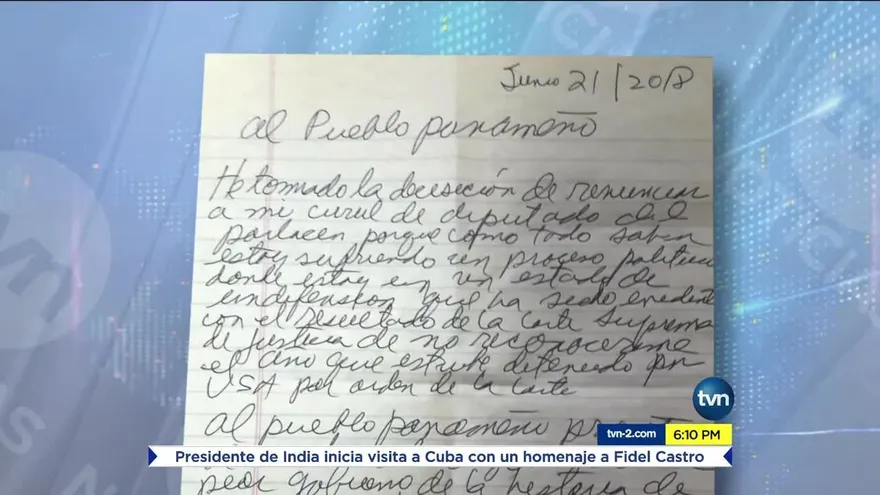 Junio 21/2018
al Pueblo panameño
He tomado la deceseción de renunciar
a mi curul de diputado del
parlacen porque como todo saben
estoy supriendo un proceso politico
donde estoy en un estado de
indifension que ha sido evidente
con el resultado de la corte Suprema
de justicia de no reconocerme
el año que estube detenido en
USA por orden de la corte
al pueblo panameño
peor gobierno de la historia de
tvn
tvn-2.com 6:10 PM
Presidente de India inicia visita a Cuba con un homenaje a Fidel Castro